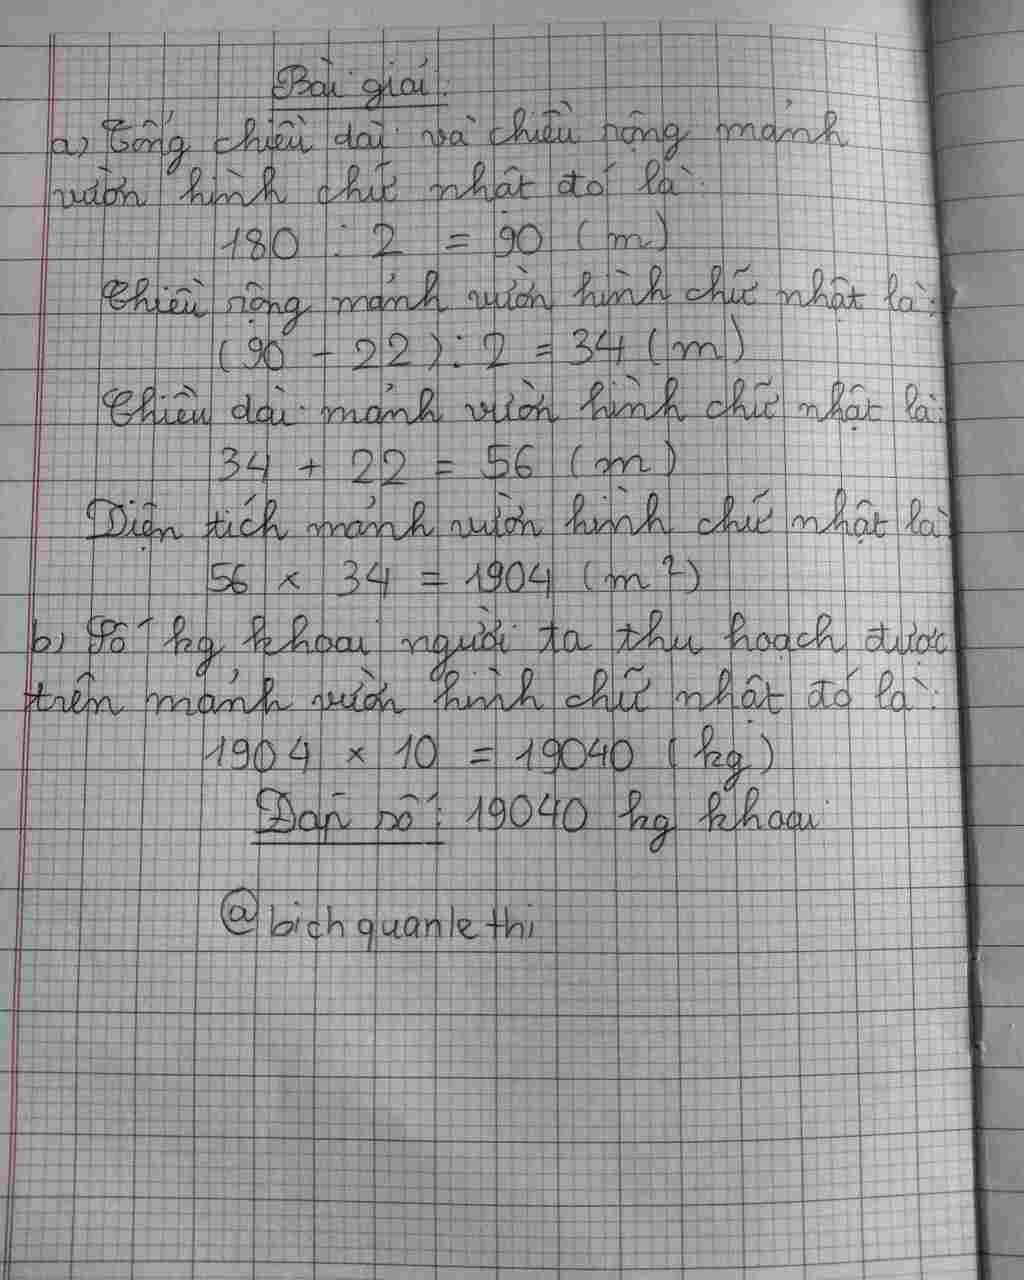 Bài giải:
a) Tổng chiều dài và chiều rộng mảnh
vườn hình chữ nhật đó là:
180 : 2 = 90 (m)
Chiều rộng mảnh vườn hình chữ nhật là:
(90 - 22) : 2 = 34 (m)
Chiều dài mảnh vườn hình chữ nhật là:
34 + 22 = 56 (m)
Diện tích mảnh vườn hình chữ nhật là
56 × 34 = 1904 (m²)
b) Số kg khoai người ta thu hoạch được
trên mảnh vườn hình chữ nhật đó là:
1904 × 10 = 19040 (kg)
Đáp số: 19040 kg khoai
@bichquanlethi